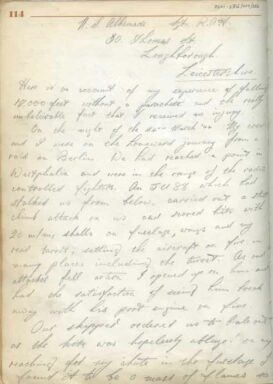 114
N. S. Alkemade Sgt. R.A.F.
Thomas St
Loughborough
Leicestershire
Here is an account of my experience of falling
18,000 feet without a parachute and the really
unbelievable fact that I received no injury.
On the night of the 24th March '44 My crew
and I were on the homeward journey from a
raid on Berlin. We had reached a point in
Westphalia and were in the range of the radio
controlled fighters. An JU 88 which had
stalked us from below, carried out a
climb attack on us and scored hits with
20 m/m shells on fuselage, wings and my
rear turret, setting the aircraft on fire in
many places including the turret. As our
attacker fell astern I opened up on him and
had the satisfaction of seeing him break
away with his port engine on fire.
Our skipper ordered us to bale out
as the kite was hopelessly ablaze: on my
reaching for my chute in the fuselage I
found it to be a mass of flames